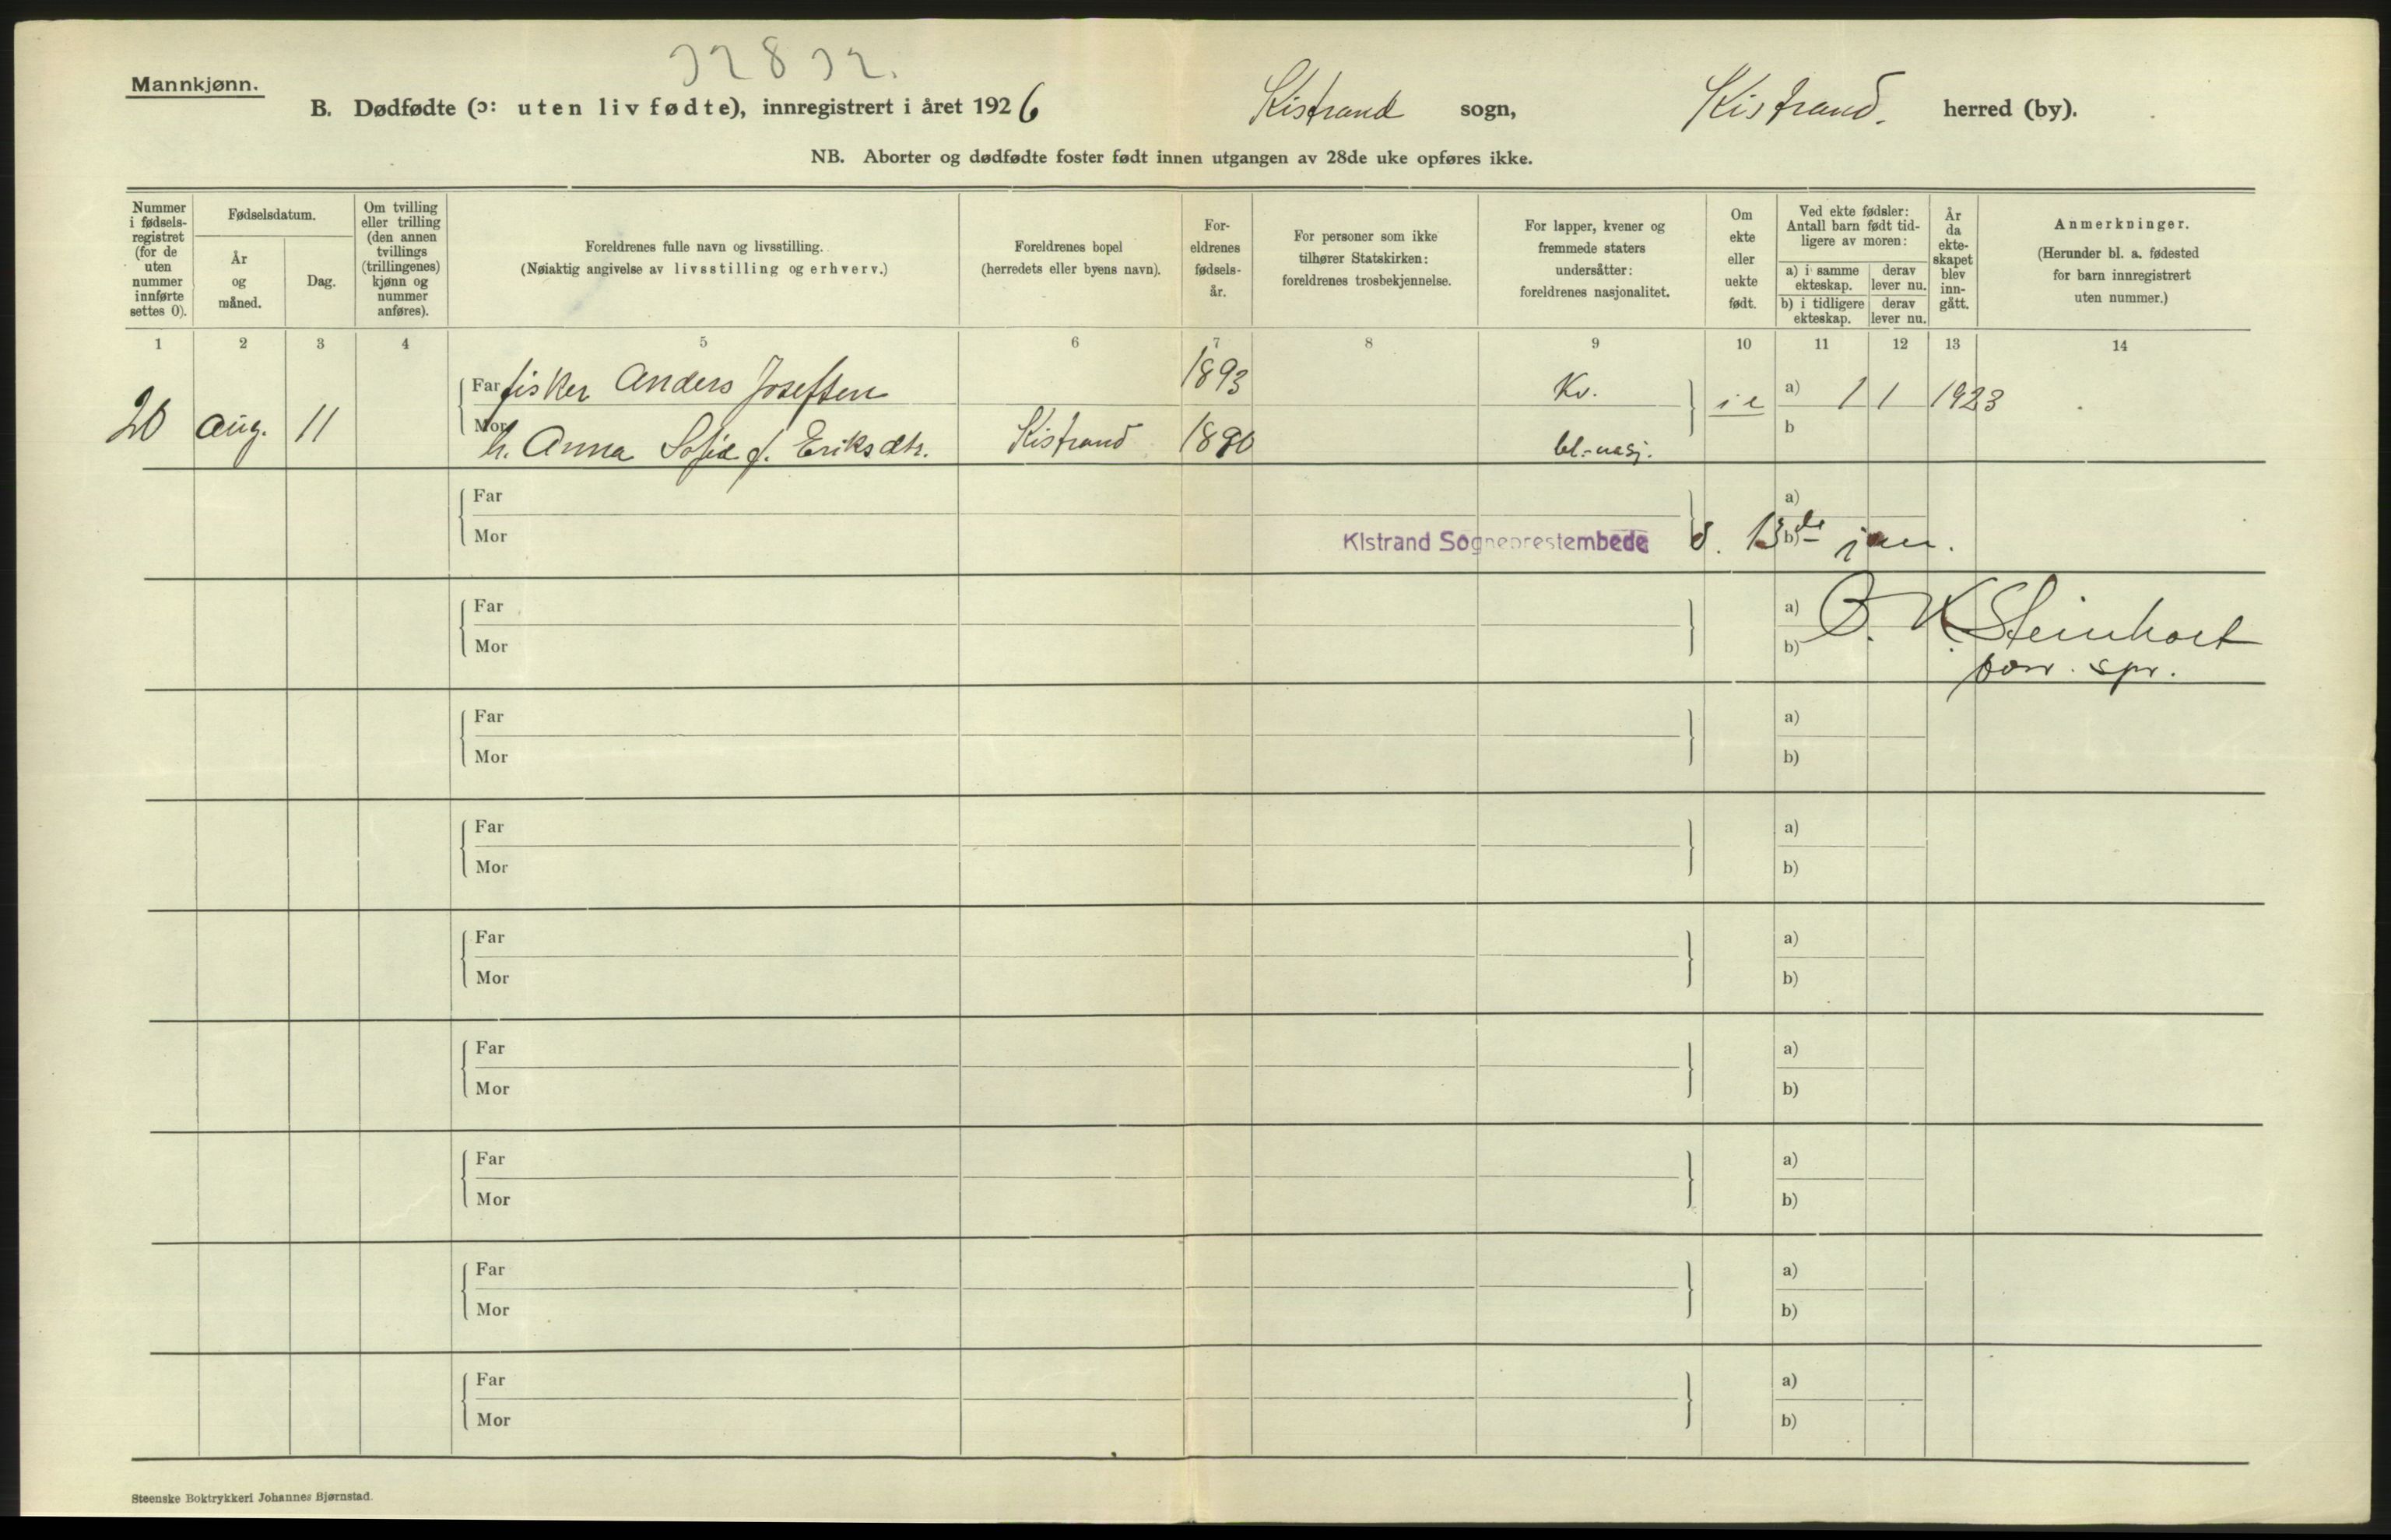 Mannkjønn.
B. Dødfødte (ɔ: uten liv fødte), innregistrert i året 1926 Kistrand sogn, Kistrand. herred (by).
NB. Aborter og dødfødte foster født innen utgangen av 28de uke opføres ikke.
Nummer i fødsels-registret (for de uten nummer innførte settes 0).
Fødselsdatum.
År og måned.
Dag.
Om tvilling eller trilling (den annen tvillings (trillingenes) kjønn og nummer anføres).
Foreldrenes fulle navn og livsstilling.
(Nøiaktig angivelse av livsstilling og erhverv.)
Foreldrenes bopel
(herredets eller byens navn).
For-eldrenes fødsels-år.
For personer som ikke tilhører Statskirken: foreldrenes trosbekjennelse.
For lapper, kvener og fremmede staters undersåtter: foreldrenes nasjonalitet.
Om ekte eller uekte født.
Ved ekte fødsler: Antall barn født tid-ligere av moren:
a) i samme ekteskap. derav lever nu.
b) i tidligere ekteskap. derav lever nu.
År da ekte-skapet blev inn-gått.
Anmerkninger.
(Herunder bl. a. fødested for barn innregistrert uten nummer.)
1 2 3 4 5 6 7 8 9 10 11 12 13 14
Far fisker Anders Josefsen 1893 Kv. a)
20 Aug. 11 i e 1 1 1923
Mor h. Anna Sofie f. Eriksdtr. Kistrand 1890 bl.-nasj. b
Far a)
Mor b)
Kistrand Sogneprestembede d. 13de jan.
Far a)
Mor b)
Steinholt
Far a)
Mor b)
Far a)
Mor b)
Far a)
Mor b)
Far a)
Mor b)
Far a)
Mor b)
Far a)
Mor b)
Far a)
Mor b)
Steenske Boktrykkeri Johannes Bjørnstad.